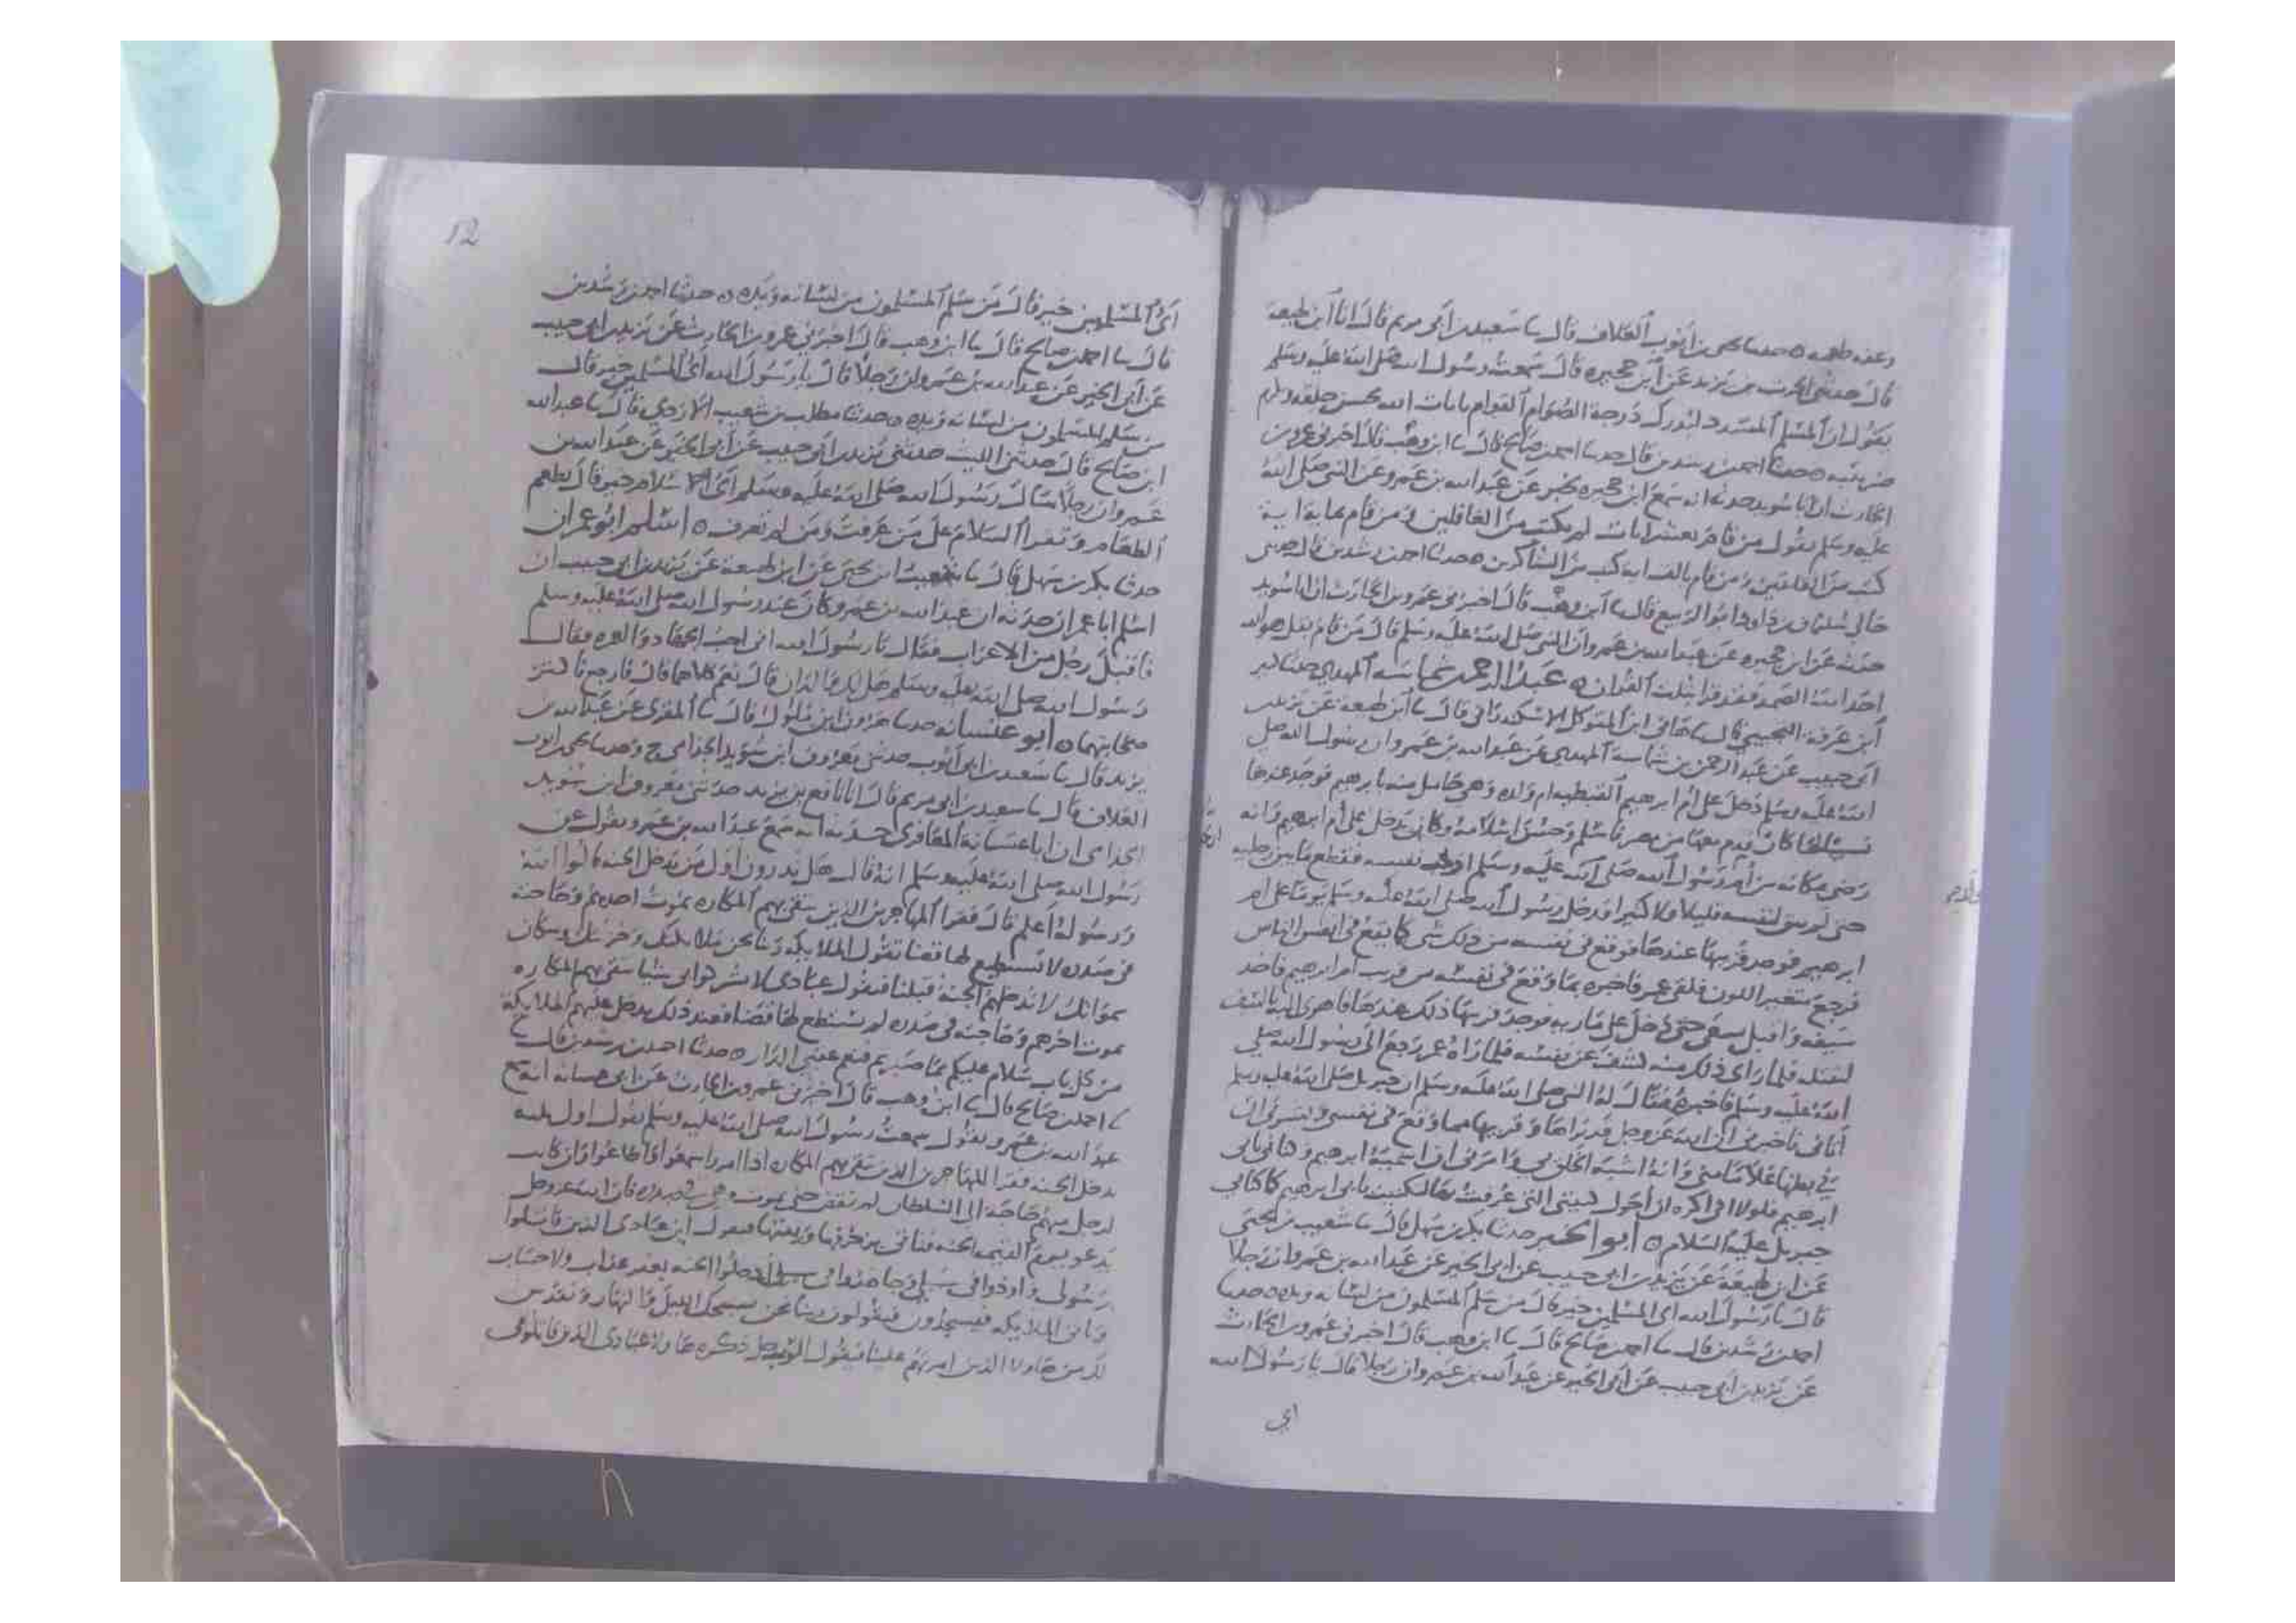 وعفه طعمه ه حدثنا يحيى بن أيوب العلاف قال نا سعيد بن أبي مريم قال انا ابن لهيعة
قال حدثني الحرث بن يزيد عن ابن حجيره قال سمعت رسول الله صلى الله عليه وسلم
يقول ان المسلم المسدد ليدرك درجة الصوام القوام بايات الله بحسن خلقه وكرم
ضريبته ه حدثنا احمد بن رشدين قال حدثنا احمد بن صالح قال نا ابن وهب قال اخبرني عمرو بن
الحارث ان ابا سويد حدثه انه سمع ابن حجيره يخبر عن عبد الله بن عمرو عن النبي صلى الله
عليه وسلم يقول من قام بعشر ايات لم يكتب من الغافلين ومن قام بماية اية
كتب من القانتين ومن قام بالف اية كتب من الشاكرين ه حدثنا احمد بن رشدين قال حدثني
خالي سليمان بن داود ابو الربيع قال نا ابن وهب قال اخبرني عمرو بن الحارث ان ابا سويد
حدثه عن ابن حجيره عن عبد الله بن عمرو ان النبي صلى الله عليه وسلم قال من قام بقل هو الله
احد الله الصمد فقد قرا بثلث القران ه عبد الرحمن بن شماسه المهدي حدثنا
ابن عرفة التجيبي قال نا هاني ابن المتوكل الاسكندراني قال نا ابن لهيعة عن يزيد بن
ابي حبيب عن عبد الرحمن بن شماسة المهدي عن عبد الله بن عمرو ان رسول الله صلى
الله عليه وسلم دخل على ام ابرهيم القبطيه ام ولده وهي حامل منه بابرهيم فوجد عندها
نسيبا لها كان قدم معها من مصر فاسلم وحسن اسلامه وكان يدخل على ام ابرهيم وانه
رضي مكانه من ام رسول الله صلى الله عليه وسلم نفسه فقطع ما بين رجليه
حتى لم يبق لنفسه قليلا ولا كثيرا فدخل رسول الله صلى الله عليه وسلم يوما على ام
ابرهيم فوجد قريبها عندها فوقع في نفسه من ذلك شي كما يقع في انفس الناس
فرجع متغير اللون فلقي عمر فاخبره بما وقع في نفسه من قريب ام ابرهيم فاخذ
سيفه واقبل يسعى حتى دخل على ماريه فوجد قريبها ذلك عندها فاهوى اليه بالسيف
ليقتله فلما راى ذلك منه كشف عن نفسه فلما راه عمر رجع الى رسول الله صلى
الله عليه وسلم فاخبره فقال له النبي صلى الله عليه وسلم ان جبريل صلى الله عليه وسلم
أتاني فاخبرني ان الله عز وجل قد براها وقريبها مما وقع في نفسي وبشرني ان
في بطنها غلاما مني وانه اشبه الخلق بي وامرني ان اسميه ابرهيم وكناني بابي
ابرهيم فلولا اني اكره ان احول كنيتي التي عرفت بها لكنيت بابي ابرهيم كما كناني
جبريل عليه السلام ه ابو الخير حدثنا بكر بن سهل قال نا شعيب بن يحيى
عن ابن لهيعة عن يزيد بن ابي حبيب عن ابي الخير عن عبد الله بن عمرو ان رجلا
قال يا رسول الله اى المسلمين خير قال من سلم المسلمون من لسانه ويده ه حدثنا
احمد بن رشدين قال نا احمد بن صالح قال نا ابن وهب قال اخبرني عمرو بن الحارث
عن يزيد بن ابي حبيب عن ابي الخير عن عبد الله بن عمرو ان رجلا قال يا رسول الله
اى
12
أى المسلمين خير قال من سلم المسلمون من لسانه ويده ه حدثنا احمد بن رشدين
قال نا احمد بن صالح قال نا ابن وهب قال اخبرني عمرو بن الحارث عن يزيد بن ابي حبيب
عن أبي الخير عن عبد الله بن عمرو ان رجلا قال يا رسول الله اى المسلمين خير قال
من سلم المسلمون من لسانه ويده ه حدثنا مطلب بن شعيب الازدي قال نا عبد الله
ابن صالح قال حدثني الليث حدثني يزيد بن ابي حبيب عن أبي الخير عن عبد الله بن
عمرو ان رجلا سال رسول الله صلى الله عليه وسلم اى الاسلام خير قال تطعم
الطعام وتقرا السلام على من عرفت ومن لم تعرف ه اسلم ابو عمران
حدثنا بكر بن سهل قال نا شعيب ابن يحيى عن ابن لهيعة عن يزيد بن ابي حبيب ان
اسلم ابا عمران حدثه ان عبد الله بن عمرو كان عند رسول الله صلى الله عليه وسلم
فاقبل رجل من الاعراب فقال يا رسول الله اني احب الجهاد والهجره فقال
رسول الله صلى الله عليه وسلم هل لك والدان قال نعم كلاهما قال فارجع فالتزم
صحابتهما ه ابو عشانه حدثنا هرون ابن ملول قال نا المقرى عن عبد الله بن
يزيد قال نا سعيد بن ابي أيوب حدثني معروف ابن سويد الجذامي ح وحدثنا يحيى بن ايوب
العلاف قال نا سعيد بن ابي مريم قال انا نافع بن يزيد حدثني معروف ابن سويد
الجذامي ان ابا عشانة المعافري حدثه انه سمع عبد الله بن عمرو يقول عن
رسول الله صلى الله عليه وسلم انه قال هل تدرون اول من يدخل الجنه قالوا الله
ورسوله اعلم قال فقرا المهاجرين الذين يتقى بهم المكاره يموت احدهم وحاجته
في صدره لا يستطيع لها قضا تقول الملايكه ربنا نحن ملايكتك وخزنتك وسكان
سمواتك لا تدخلهم الجنة قبلنا فيقول عبادى لا يشركوا بي شيا يتقى بهم المكاره
يموت احدهم وحاجته في صدره لم يستطع لها قضا فعند ذلك يدخل عليهم الملايكة
من كل باب سلام عليكم بما صبرتم فنعم عقبى الدار ه حدثنا احمد بن رشدين قال
نا احمد بن صالح قال نا ابن وهب قال اخبرني عمرو بن الحارث عن ابي عشانه انه سمع
عبد الله بن عمرو يقول سمعت رسول الله صلى الله عليه وسلم يقول اول ثلة
يدخل الجنه فقرا المهاجرين الذين يتقى بهم المكاره اذا امروا سمعوا واطاعوا وان كانت
لرجل منهم حاجة الى السلطان لم تقض حتى يموت وهي في صدره فان الله عز وجل
يدعو يوم القيمه الجنه فتاتي بزخرفها وزينتها فيقول اين عبادى الذين قاتلوا
رسولى واوذوا في سبيلي وجاهدوا في سبيلي ادخلوا الجنه بغير عذاب ولا حساب
وتاتى الملايكه فيسجدون فيقولون ربنا نحن نسبحك الليل والنهار ونقدس
لك من هاولا الذين اثرتهم علينا فيقول الرب جل ذكره هاولا عبادى الذين قاتلوا في